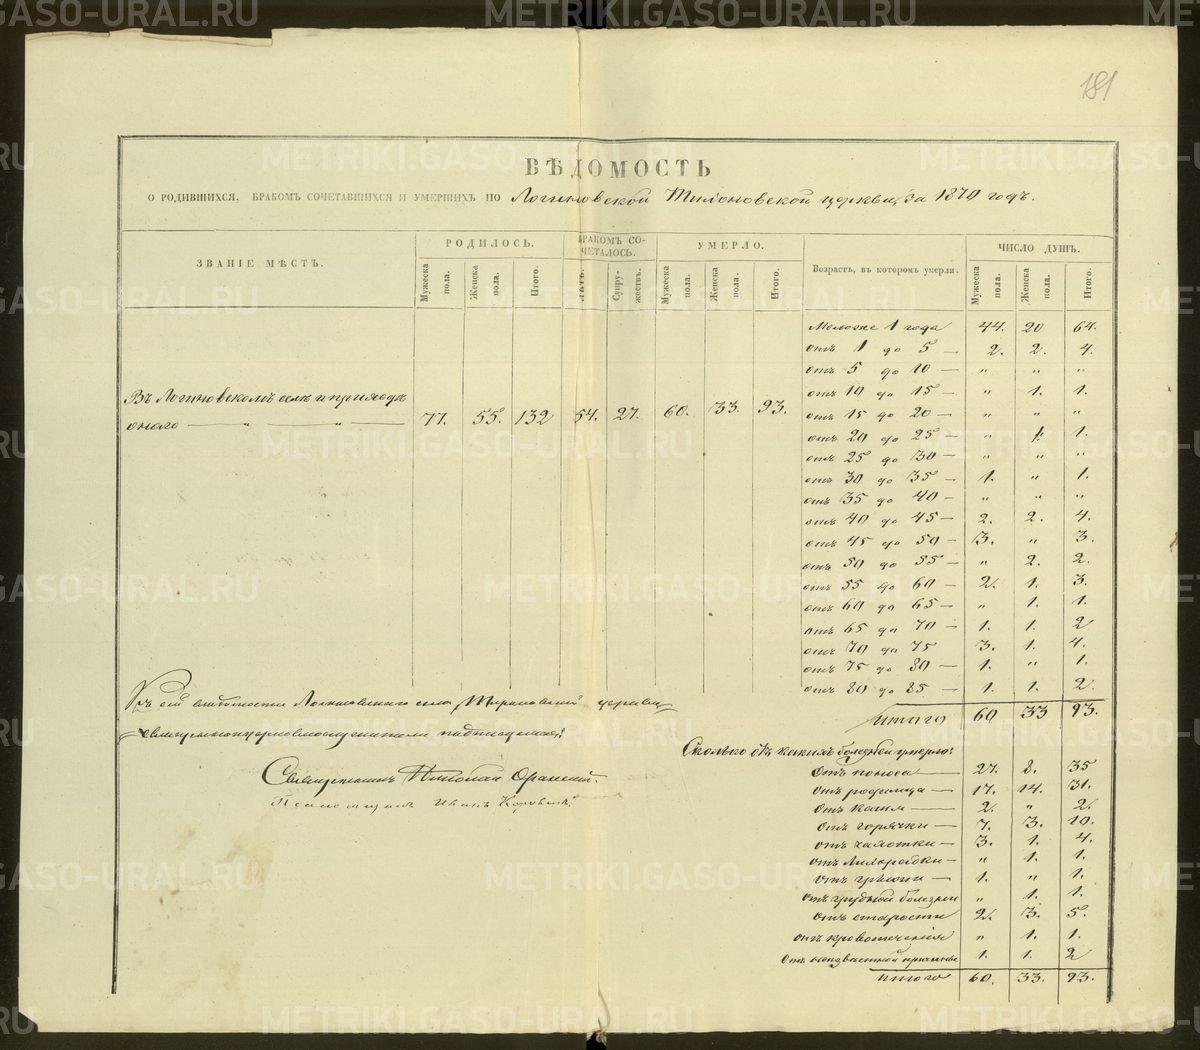 181
ВѢДОМОСТЬ
О РОДИВШИХСЯ, БРАКОМЪ СОЧЕТАВШИХСЯ И УМЕРШИХЪ ПО Логиновской церкви, за 1879 годъ.
ЗВАНІЕ МѢСТЪ.
РОДИЛОСЬ.
БРАКОМЪ СО-
ЧЕТАЛОСЬ.
УМЕРЛО.
Возрастъ, въ которомъ умерли.
ЧИСЛО ДУШЪ.
Мужеска пола. Женска пола. Итого. Лицъ. Супру-жествъ. Мужеска пола. Женска пола. Итого. Мужеска пола. Женска пола. Итого.
Моложе 1 года 44. 20 64.
отъ 1 до 5 — 2. 2. 4.
отъ 5 до 10 — " " "
отъ 10 до 15 — " 1. 1.
Въ Логиновскомъ селѣ и приходѣ
онаго — " — " — 77. 55. 132 54. 27. 60. 33. 93.
отъ 15 до 20 — " " "
отъ 20 до 25 — " 1. 1.
отъ 25 до 30 — " " "
отъ 30 до 35 — 1. " 1.
отъ 35 до 40 — " " "
отъ 40 до 45 — 2. 2. 4.
отъ 45 до 50 — 3. " 3.
отъ 50 до 55 — " 2. 2.
отъ 55 до 60 — 2. 1. 3.
отъ 60 до 65 — " 1. 1.
отъ 65 до 70 — 1. 1. 2
отъ 70 до 75 3. 1. 4.
отъ 75 до 80 — 1. " 1.
отъ 80 до 85 — 1. 1. 2.
итого 60 33 93.
Къ сей вѣдомости Логиновскаго села церкви
священноцерковнослужители подписались:
Священникъ Николай
Псаломщикъ Иванъ
Сколько отъ какихъ болѣзней умерло:
Отъ поноса — 27. 8. 35
Отъ родимца — 17. 14. 31.
Отъ кашля — 2. " 2.
Отъ горячки — 7. 3. 10.
отъ чахотки — 3. 1. 4.
отъ Лихорадки — " 1. 1.
отъ — 1. " 1.
отъ грудной болезни " 1. 1.
отъ старости 2. 3. 5.
отъ кровотеченія " 1. 1.
отъ неизвѣстной причины 1. 1. 2
итого 60. 33. 93.
METRIKI.GASO-URAL.RU